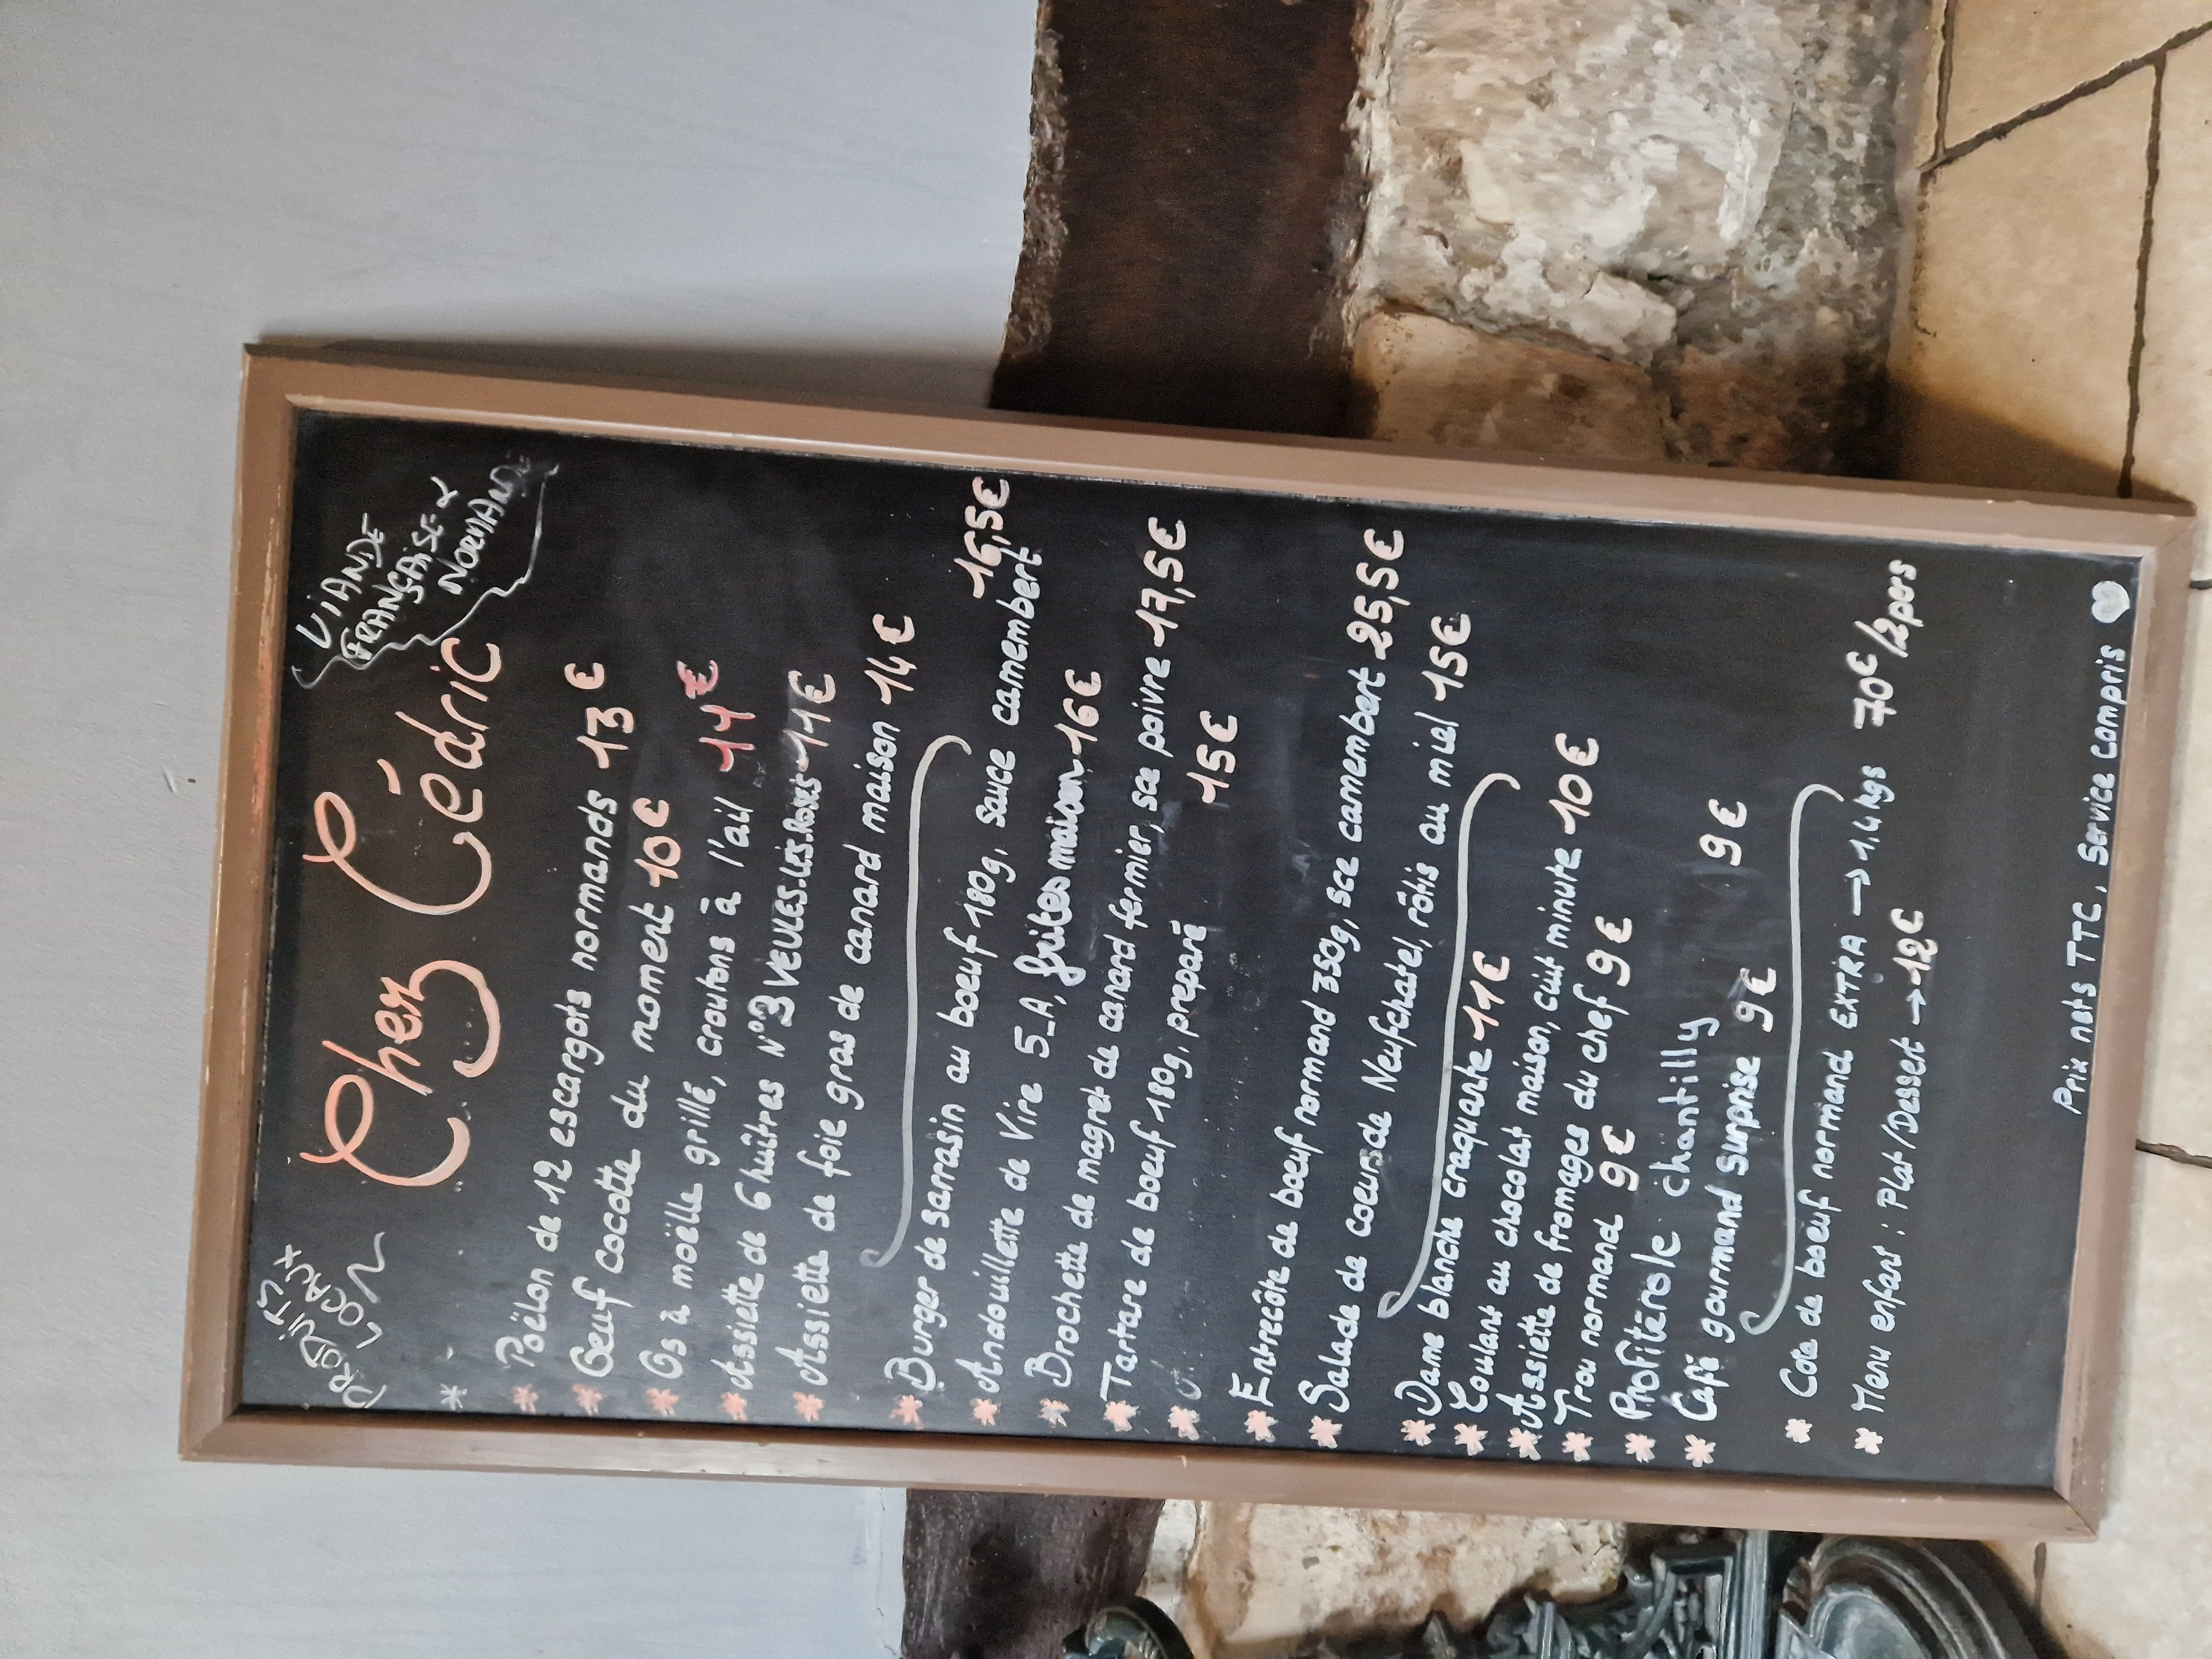 PRODUITS
LOCAUX
VIANDE
FRANÇAISE &
NORMANDE
Chez Cédric
* Poëlon de 12 escargots normands 13€
* Oeuf cocotte du moment 10€
* Os à moëlle grillé, croutons à l'ail 11€
* Assiette de 6 huîtres N°3 VEULES.LES.ROSES 11€
* Assiette de foie gras de canard maison 14€
* Burger de sarrasin au boeuf 180g, sauce camembert 16,5€
* Andouillette de Vire 5_A, frites maison 16€
* Brochette de magret de canard fermier, sce poivre 17,5€
* Tartare de boeuf 180g, preparé 15€
* Entrecôte de boeuf normand 350g, sce camembert 25,5€
* Salade de coeurs de Neufchatel, rôtis au miel 15€
* Dame blanche craquante 11€
* Coulant au chocolat maison, cuit minute 10€
* Assiette de fromages du chef 9€
* Trou normand 9€
* Profiterole chantilly 9€
* Café gourmand surprise 9€
* Cote de boeuf normand EXTRA → 1,4kgs 70€/2pers
* Menu enfant : Plat/Dessert → 12€
Prix nets TTC, Service Compris